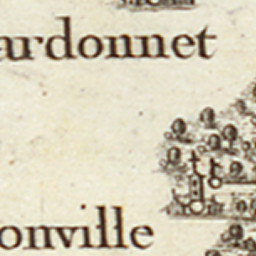 ardonnet
onville